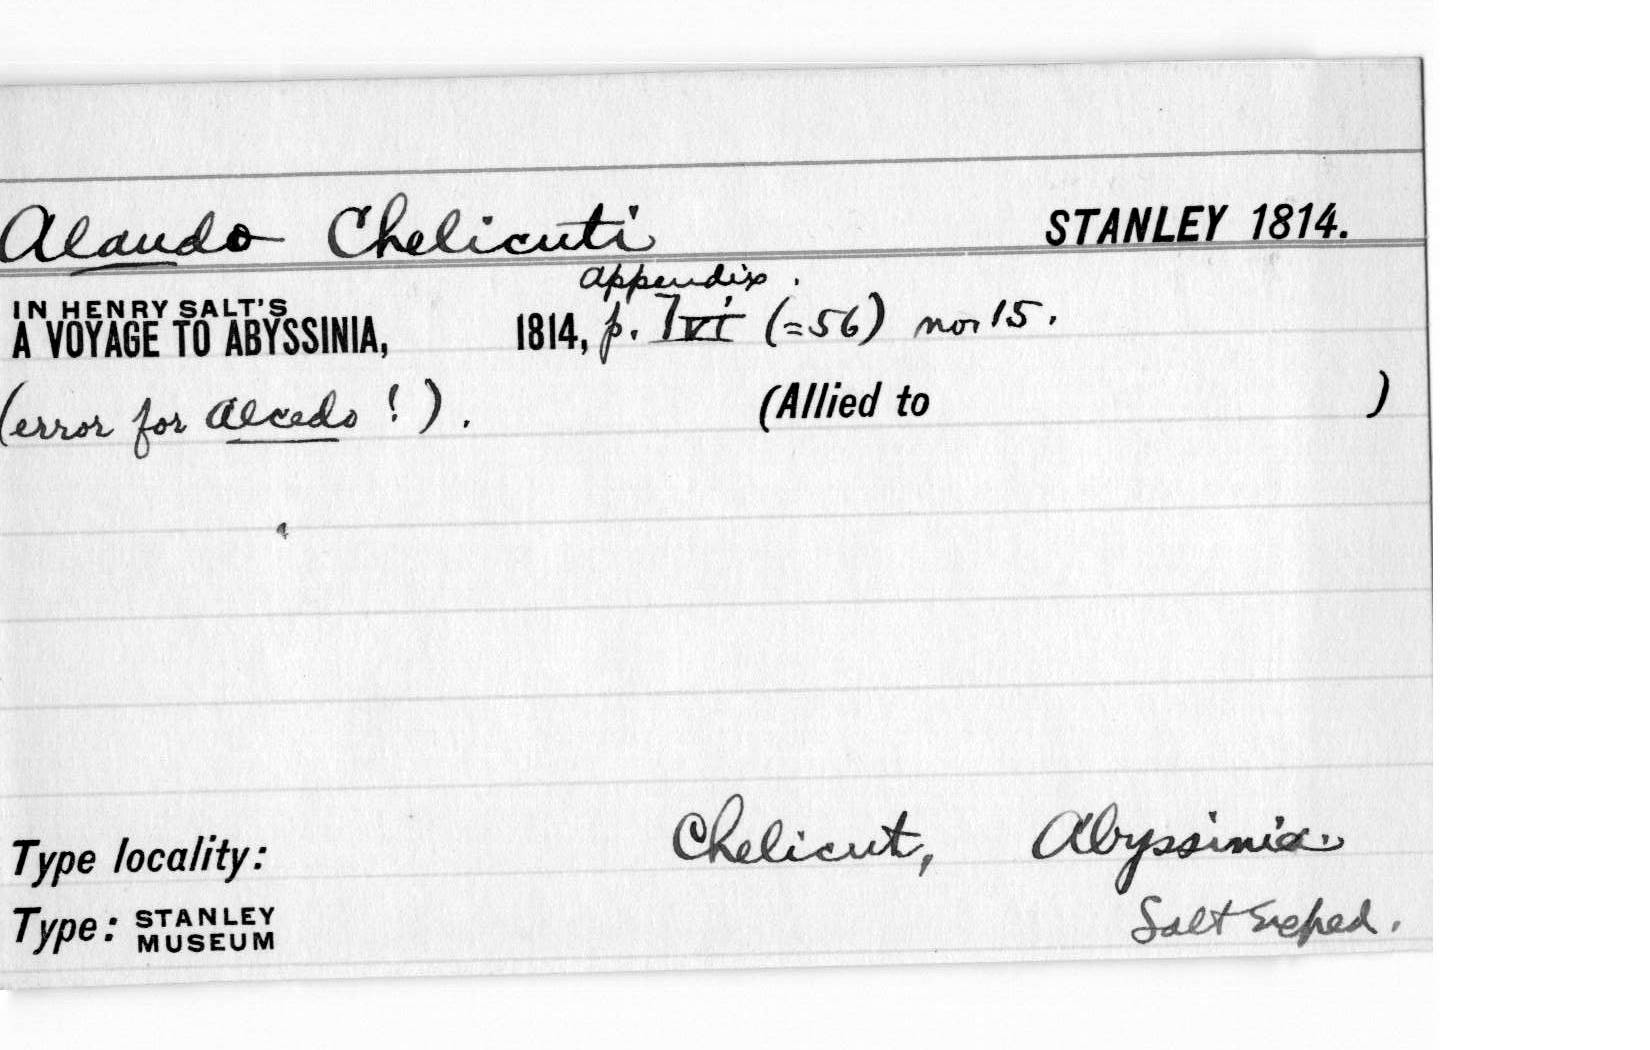 Alaudo Chelicuti STANLEY 1814.
IN HENRY SALT'S appendix.
A VOYAGE TO ABYSSINIA, 1814, p. lvi (=56) no. 15.
(error for Alcedo!). (Allied to )
Type locality: Chelicut, Abyssinia.
Type: STANLEY MUSEUM Salt Exped.